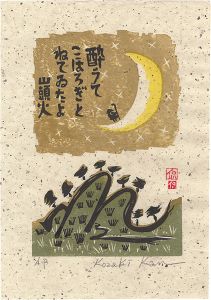 酔うて
こほろぎと
ねてゐたよ
山頭火
A.P
Kozaki Kan